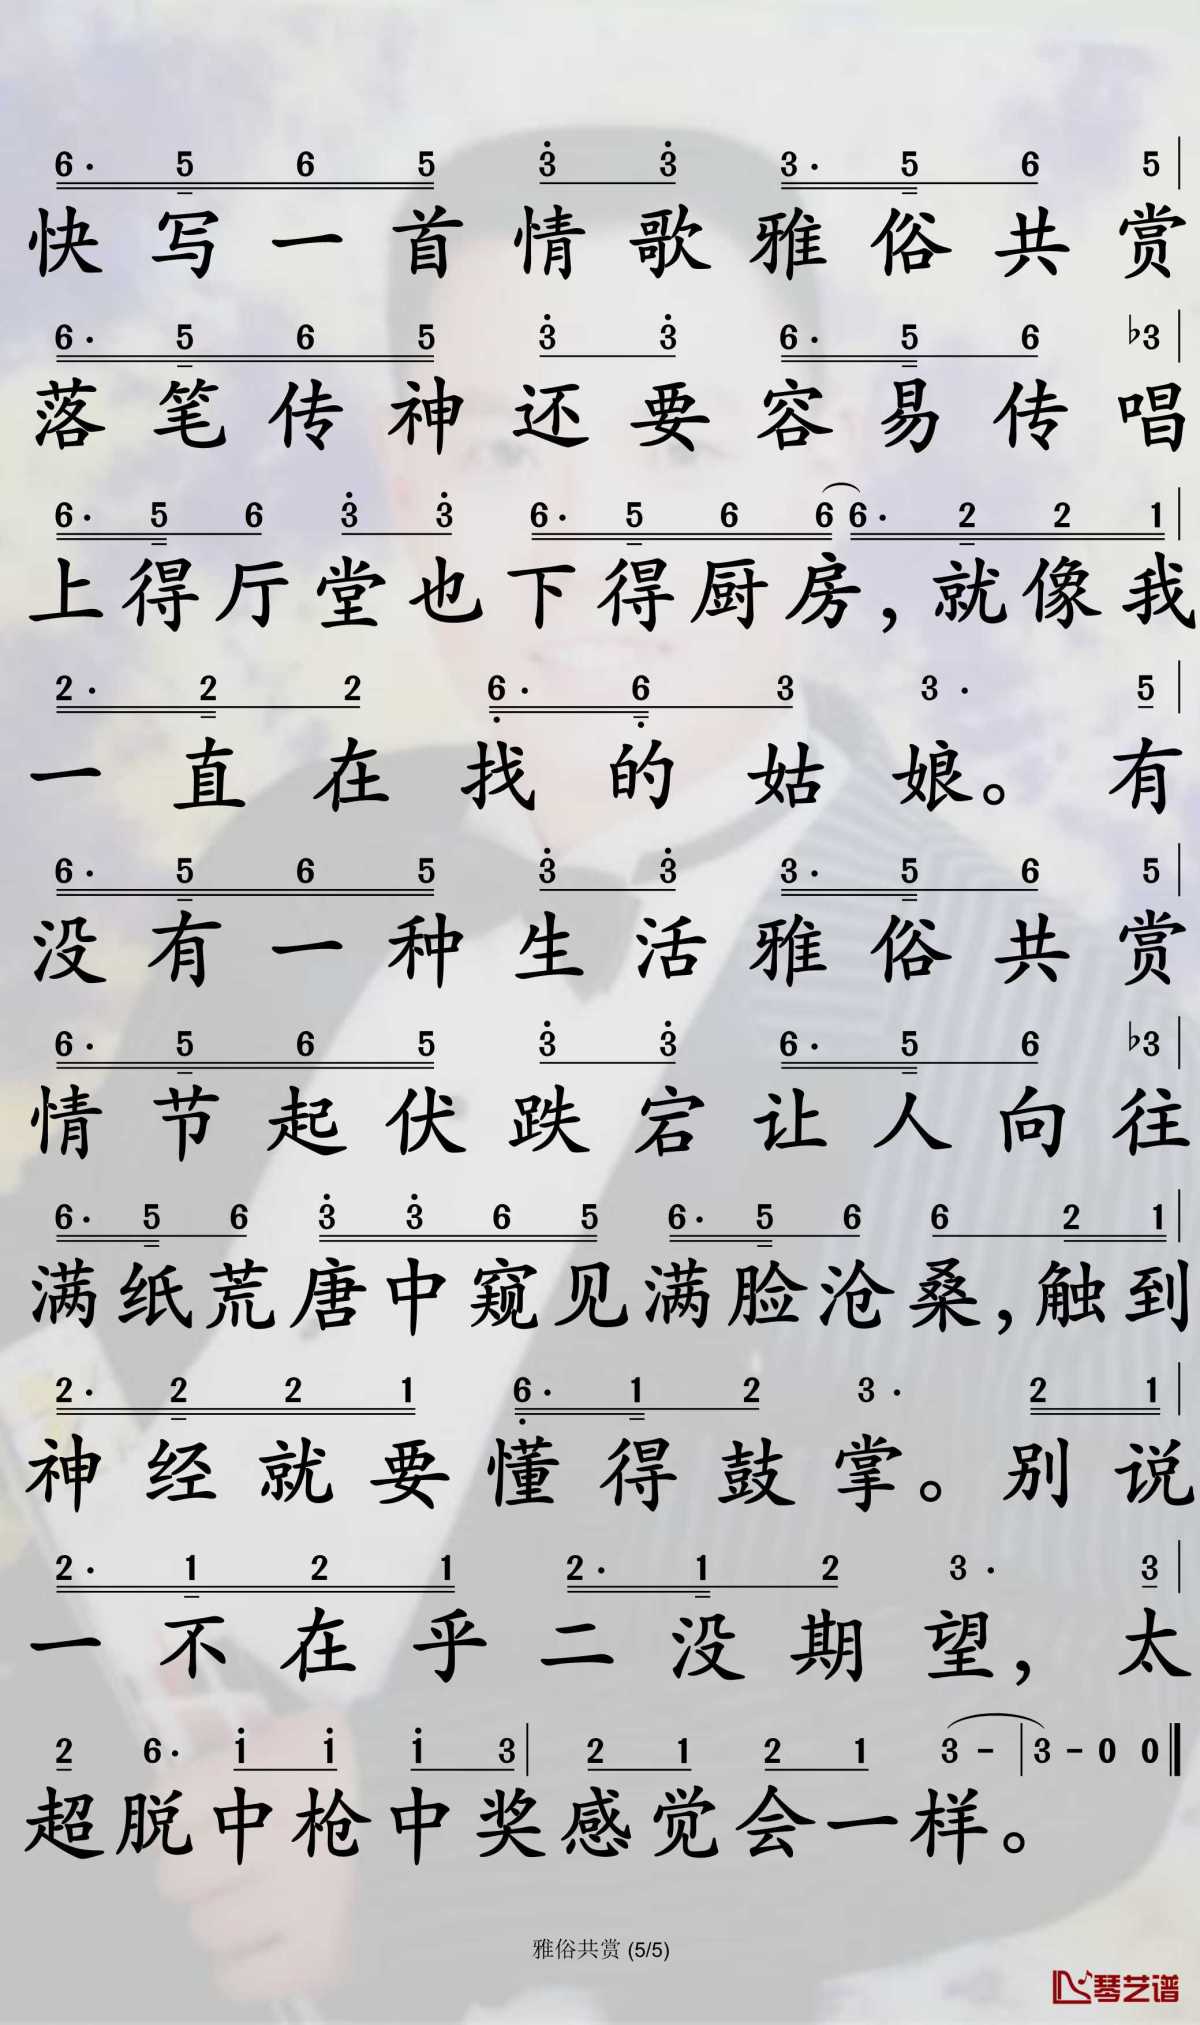 6· 5 6 5 3 3 3· 5 6 5
快写一首情歌雅俗共赏
6· 5 6 5 3 3 6· 5 6 ♭3
落笔传神还要容易传唱
6· 5 6 3 3 6· 5 6 6 6· 2 2 1
上得厅堂也下得厨房，就像我
2· 2 2 6· 6 3 3· 5
一直在找的姑娘。有
6· 5 6 5 3 3 3· 5 6 5
没有一种生活雅俗共赏
6· 5 6 5 3 3 6· 5 6 ♭3
情节起伏跌宕让人向往
6· 5 6 3 3 6 5 6· 5 6 6 2 1
满纸荒唐中窥见满脸沧桑，触到
2· 2 2 1 6· 1 2 3· 2 1
神经就要懂得鼓掌。别说
2· 1 2 1 2· 1 2 3· 3
一不在乎二没期望，太
2 6· 1 1 1 3 2 1 2 1 3 - 3 - 0 0
超脱中枪中奖感觉会一样。
雅俗共赏 (5/5)
琴艺谱